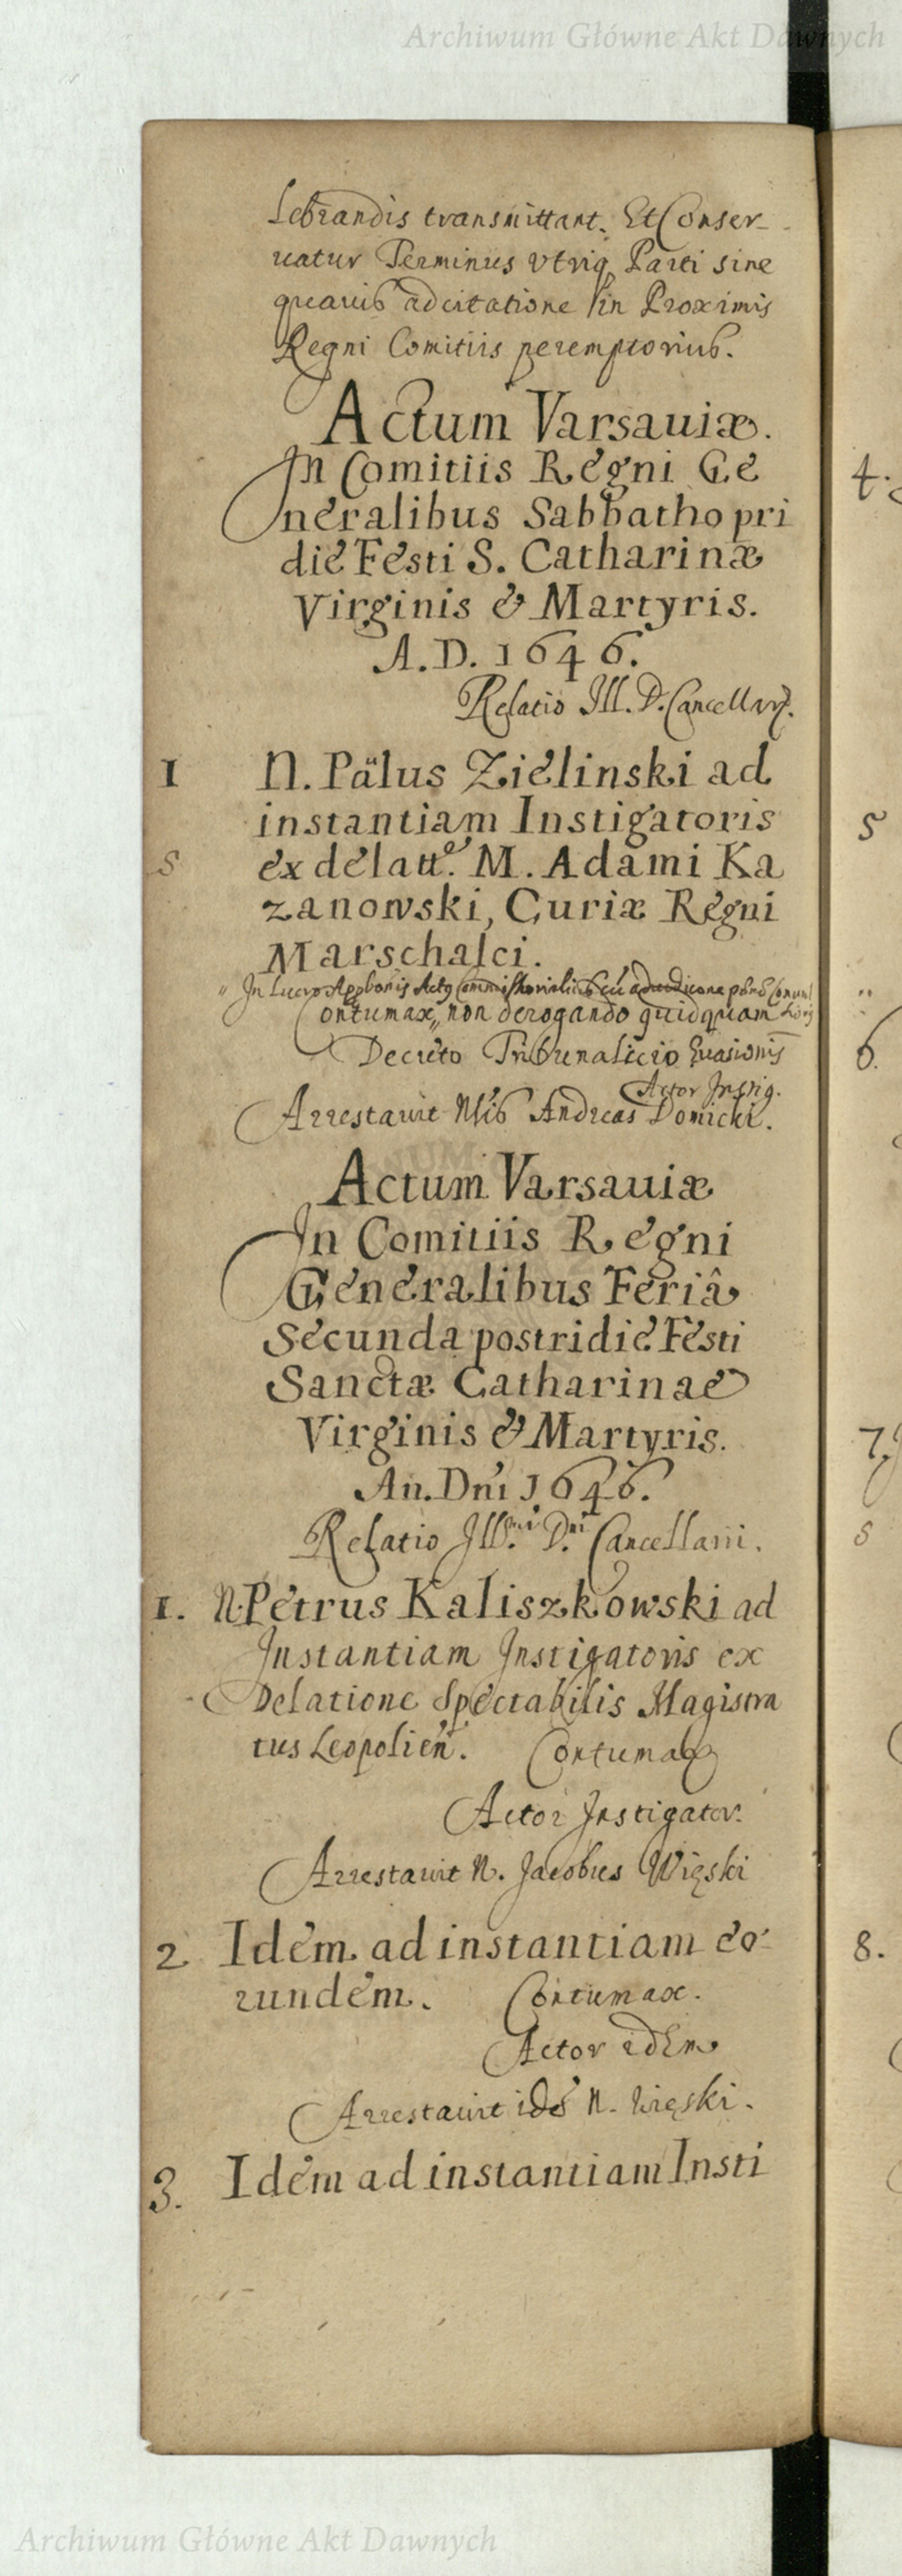 Archiwum Główne Akt Dawnych
lebrandis transmittant. Et Conser-
uatur Terminus vtriq Parti sine
quauis adcitatione in Proximis
Regni Comitiis peremptorius.
Actum Varsauiæ.
In Comitiis Regni Ge
neralibus Sabbatho pri
die Festi S. Catharinæ
Virginis & Martyris.
A.D. 1646.
Relatio Ill. D. Cancellarÿ.
1 N. Pälus Zielinski ad
instantiam Instigatoris
s ex delatt.e M. Adami Ka
zanowski, Curiæ Regni
Marschalci.
In Lucro Actq Commissorialis cū
ontumax,, non derogando quidquam
Decreto Tribunalicio Euasionis
Actor Instig.
Arrestauit Nlis Andreas Domicki.
Actum Varsauiæ
In Comitiis Regni
Generalibus Feriâ
Secunda postridie Festi
Sanctæ Catharinae
Virginis & Martyris.
An. Dni 1646.
Relatio Ill.mi D.ni Cancellarii.
1. N. Petrus Kaliszkowski ad
Instantiam Instigatoris ex
Delatione Spectabilis Magistra
tus Leopolien̄. Contumax
Actor Instigator.
Arrestauit N. Jacobus Więski
2 Idem ad instantiam eo-
rundem. Contumax.
Actor idem
Arrestauit idē N. Więski.
3. Idem ad instantiam Insti
4.
5
6.
7.
s
8.
Archiwum Główne Akt Dawnych